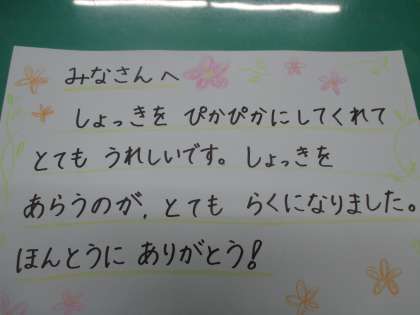 みなさんへ
しょっきを ぴかぴかにしてくれて
とても うれしいです。しょっきを
あらうのが、とても らくになりました。
ほんとうに ありがとう!